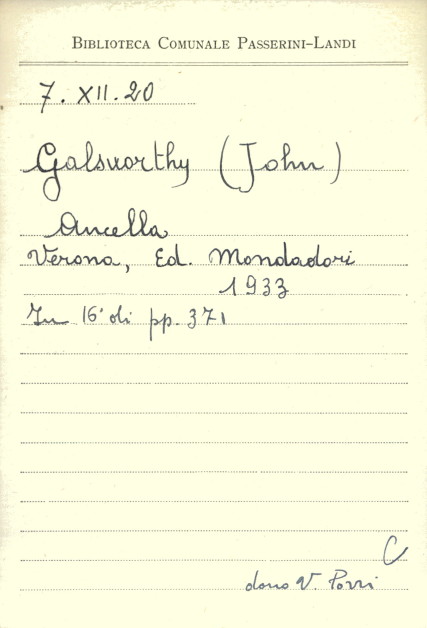 BIBLIOTECA COMUNALE PASSERINI-LANDI
7. XII. 20
Galsworthy (John)
Ancella
Verona, Ed. Mondadori
1933
In 16° di pp. 371
C
dono V.